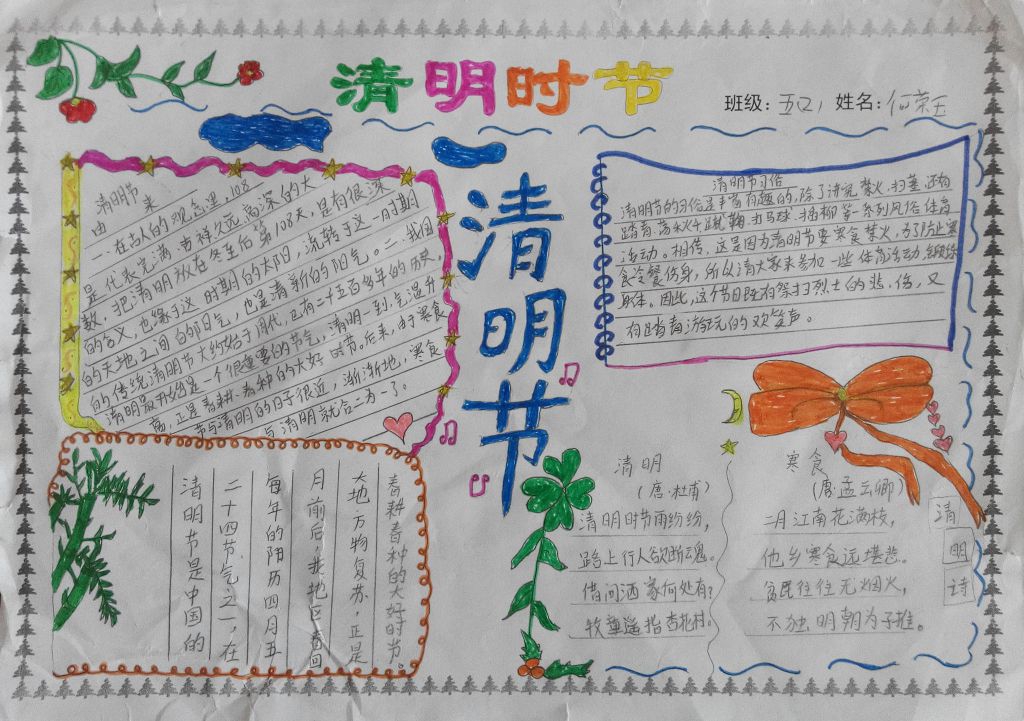 清明时节
班级：五(2) 姓名：何荣玉
清明节
清明节
由来
一.在古人的观念里，108
是代表完满、吉祥、久远、高深的大
数，把清明放在冬至后第108天，是有很深
的含义，也缘于这一时期的太阳，流转于这一时期
的天地之间的阳气，也是清新的阳气。二.我国
的传统清明节大约始于周代，已有二千五百多年的历史，
清明最开始是一个很重要的节气，清明一到，气温升
高，正是春耕春种的大好时节。后来，由于寒食
节与清明的日子很近，渐渐地，寒食
与清明就合二为一了。
清明节习俗
清明节的习俗是丰富有趣的，除了讲究禁火、扫墓，还有
踏青、荡秋千、蹴鞠、打马球、插柳等一系列风俗体育
活动。相传，这是因为清明节要寒食禁火，为了防止寒
食冷餐伤身，所以请大家来参加一些体育活动，锻炼
身体。因此，这个节日既有祭扫烈士的悲伤，又
有踏青游玩的欢笑声。
春耕春种的大好时节。
大地万物复苏，正是
月前后，我把区春回
每年的阳历四月五
二十四节气之一，在
清明节是中国的
清明
（唐·杜甫）
清明时节雨纷纷，
路上行人欲断魂。
借问酒家何处有？
牧童遥指杏花村。
寒食
（唐·孟云卿）
二月江南花满枝，
他乡寒食远堪悲。
贫居往往无烟火，
不独明朝为子推。
清
明
诗